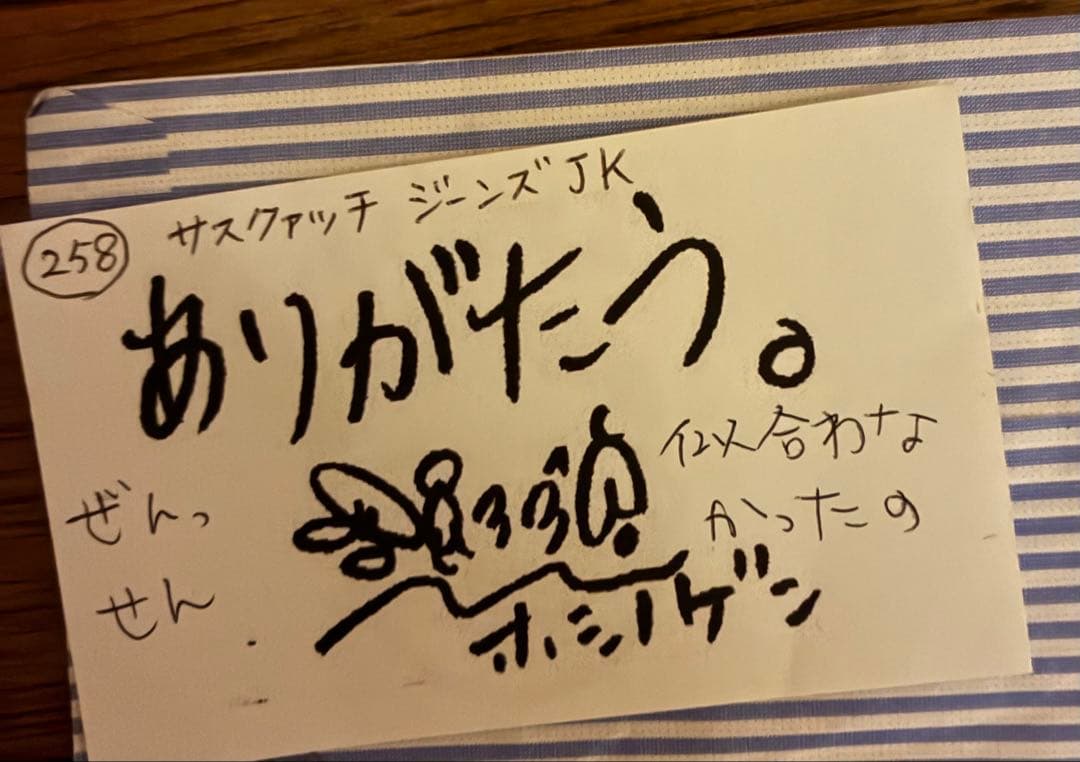 258 サスクァッチ ジーンズJK
ありがたう。
ぜんっ
せん
似合わな
かったの
ホシノゲン